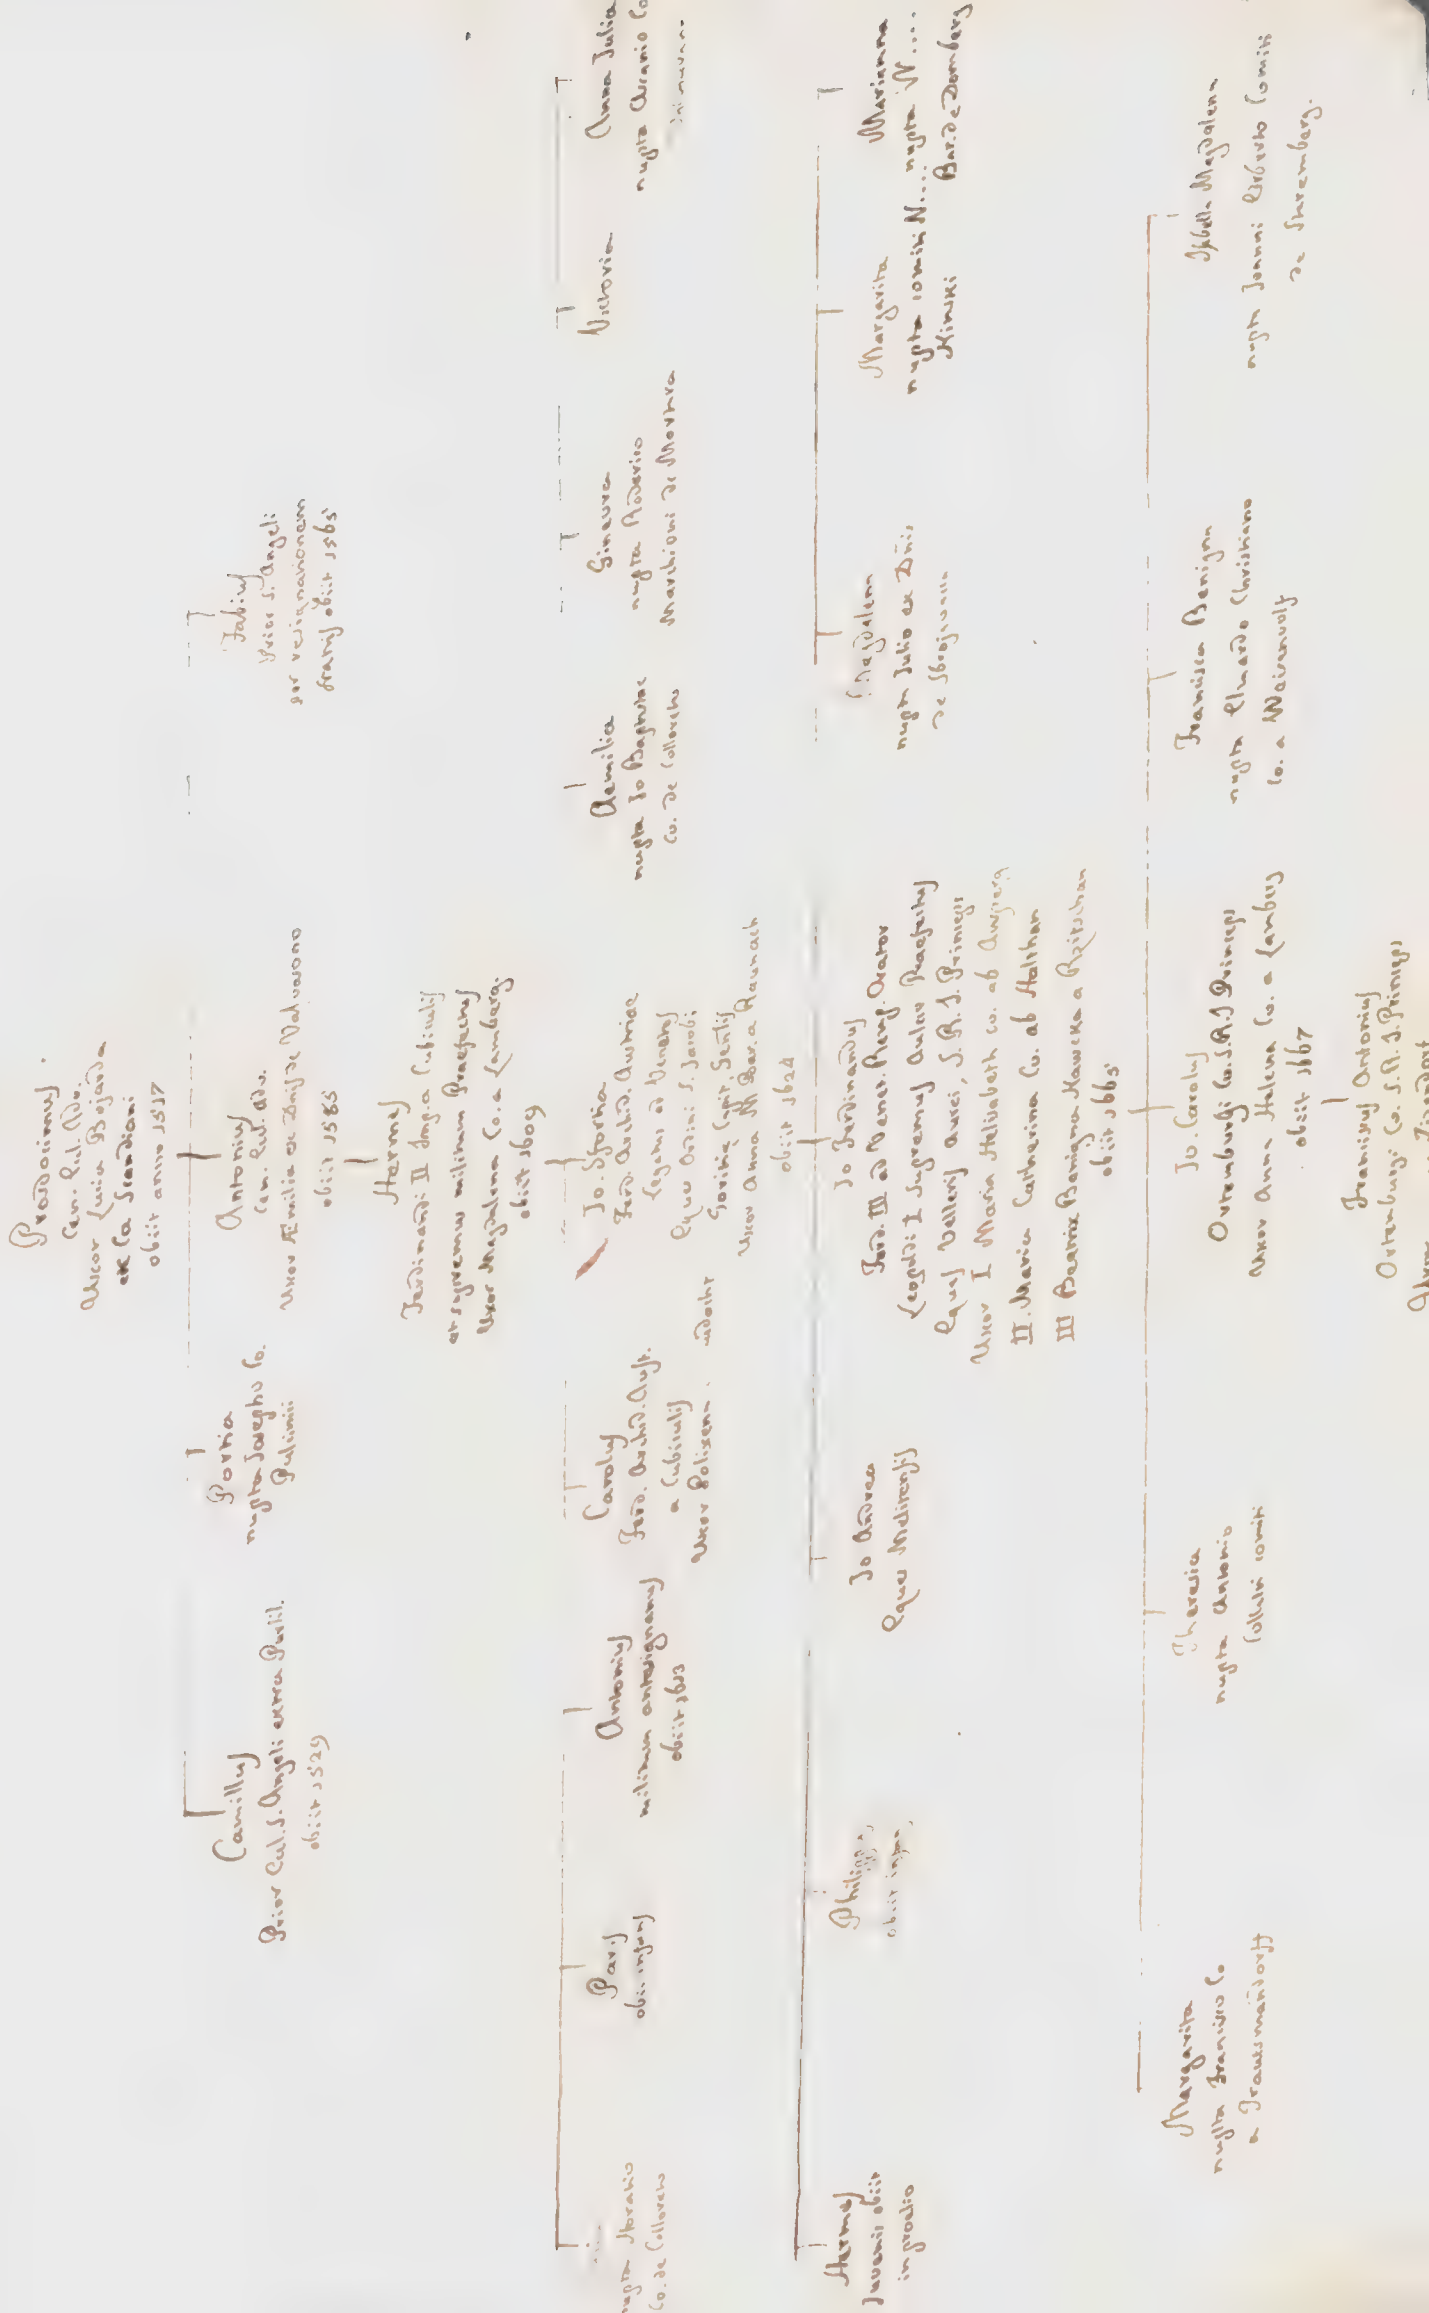 Prodocimus
Caes. Cub. Adi.
Uxor Lucia Bojarda
ex Co. Scandiani
obiit anno 1517
Camillus
Prior Cal. S. Angeli extra Portil.
obiit 1529
Portia
nupta Josepho Co.
Pulinici
Antonius
Caes. Cub. Adv.
Uxor Æmilia ex Dnis de Valvasono
obiit 1585
Fabius
Prior S. Angeli
per resignationem
fratris obiit 1565
Hermes
Ferdinandi II Imp. a Cubiculis
et supremus militum Praefectus
Uxor Magdalena Co. a Lamberg.
obiit 1609
nupta Horatio
Co. de Colloreto
Paris
obiit infans
Antonius
militum antesignanus
obiit 1623
Carolus
Ferd. Archid. Aust.
a Cubiculis
Uxor Polixena
Jo. Sfortia
Ferd. Archid. Austriae
Legatus ad Venetos
Eques Ordinis S. Jacobi
Goritiae Capit.
Uxor Anna M. Bar. a Raunach
obiit 1624
Aemilia
nupta Jo Baptistae
Co. de Colloreto
Ginevra
nupta Roderico
Marchioni de
Victoria
Anna Julia
nupta Ascanio Co
Hermes
Juvenis obiit
in proelio
Philippus
obiit infans
Jo Andrea
Eques Melitensis
Jo Ferdinandus
Ferd. III ad Venet. Remp. Orator
Leopoldi I Supremus Aulae Praefectus
Eques Velleris Aurei, S. R. I. Princeps
Uxor I Maria Helisabeth Co. ab Aursperg
II. Maria Catherina Co. ab Halthan
III Beatrix Benigna Kawcka a Rzitschan
obiit 1665
Magdalena
nupta Julio ex Dnis
de Sbrojavacca
Margarita
nupta comiti N....
Kinski
Marianna
nupta N....
Bar. de Domberg
Margarita
nupta Francisco Co
a Trautsmandorff
Theresia
nupta Antonio
Collalti comiti
Jo. Carolus
Ortemburgi Co. S.R.I Princeps
Uxor Anna Helena Co. a Lamberg
obiit 1667
Francisca Benigna
nupta Eduardo Christiano
Co. a Waisenwolf
Isabella Magdalena
nupta Joanni Comiti
de Sternberg.
Franciscus Antonius
Ortenburgi Co. S. R. I. Princeps